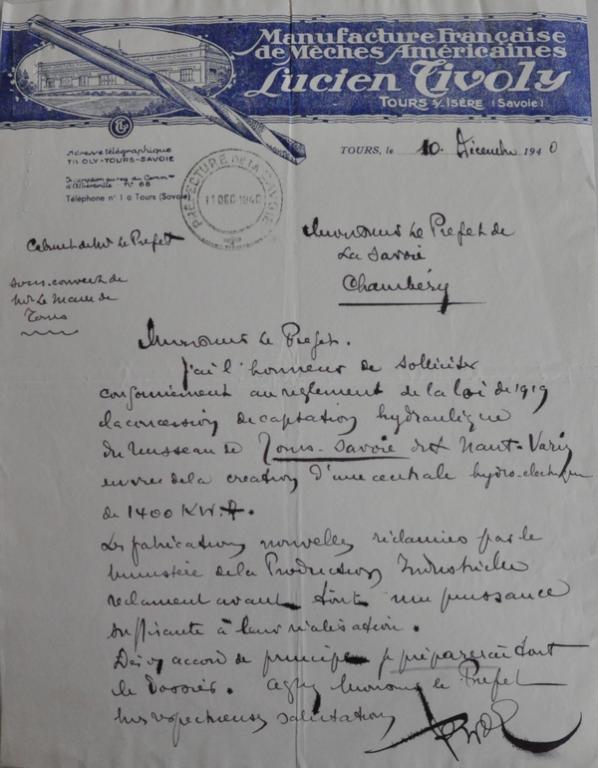 Manufacture Française
de Mèches Américaines
Lucien Tivoly
TOURS s/ ISÈRE (Savoie)
Adresse télégraphique
TIVOLY-TOURS-SAVOIE
d'Albertville N° 68
Téléphone n° 1 à Tours (Savoie)
TOURS, le 10 Décembre 1940
PREFECTURE DE LA SAVOIE
11 DEC 1940
Cabinet de Mr Le Prefet
sous couvert de
Mr Le Maire de
Tours
Monsieur Le Prefet de
La Savoie
Chambéry
Monsieur Le Prefet.
J'ai l'honneur de solliciter
conformément au reglement de la loi de 1919
la concession de captation hydraulique
du ruisseau de Tours-Savoie dit Haut-
en vue de la creation d'une centrale hydro-electrique
de 1400 KW.
Les fabrications nouvelles réclamées par le
ministère de la Production Industrielle
reclament avant tout une puissance
suffisante à leur réalisation.
Dès accord de principe je préparerai tout
le Dossier. Agréez Monsieur le Prefet
mes respectueuses salutations